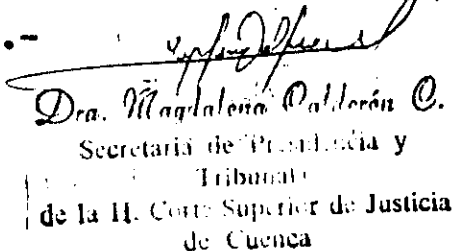 Dra. Magdalena Calderón C.
Secretaria de Presidencia y
Tribunal
de la H. Corte Superior de Justicia
de Cuenca